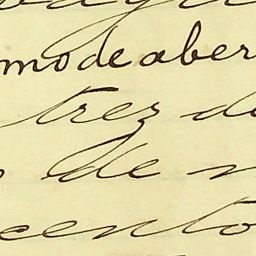 mo de aber
trez d
de
cento